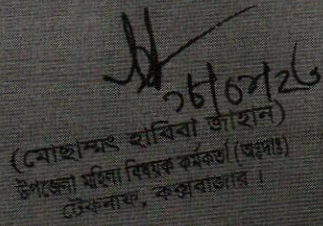 (মোছাম্মৎ হাবিবা জাহান)
উপজেলা মহিলা বিষয়ক কর্মকর্তা (অঃদাঃ)
টেকনাফ, কক্সবাজার।